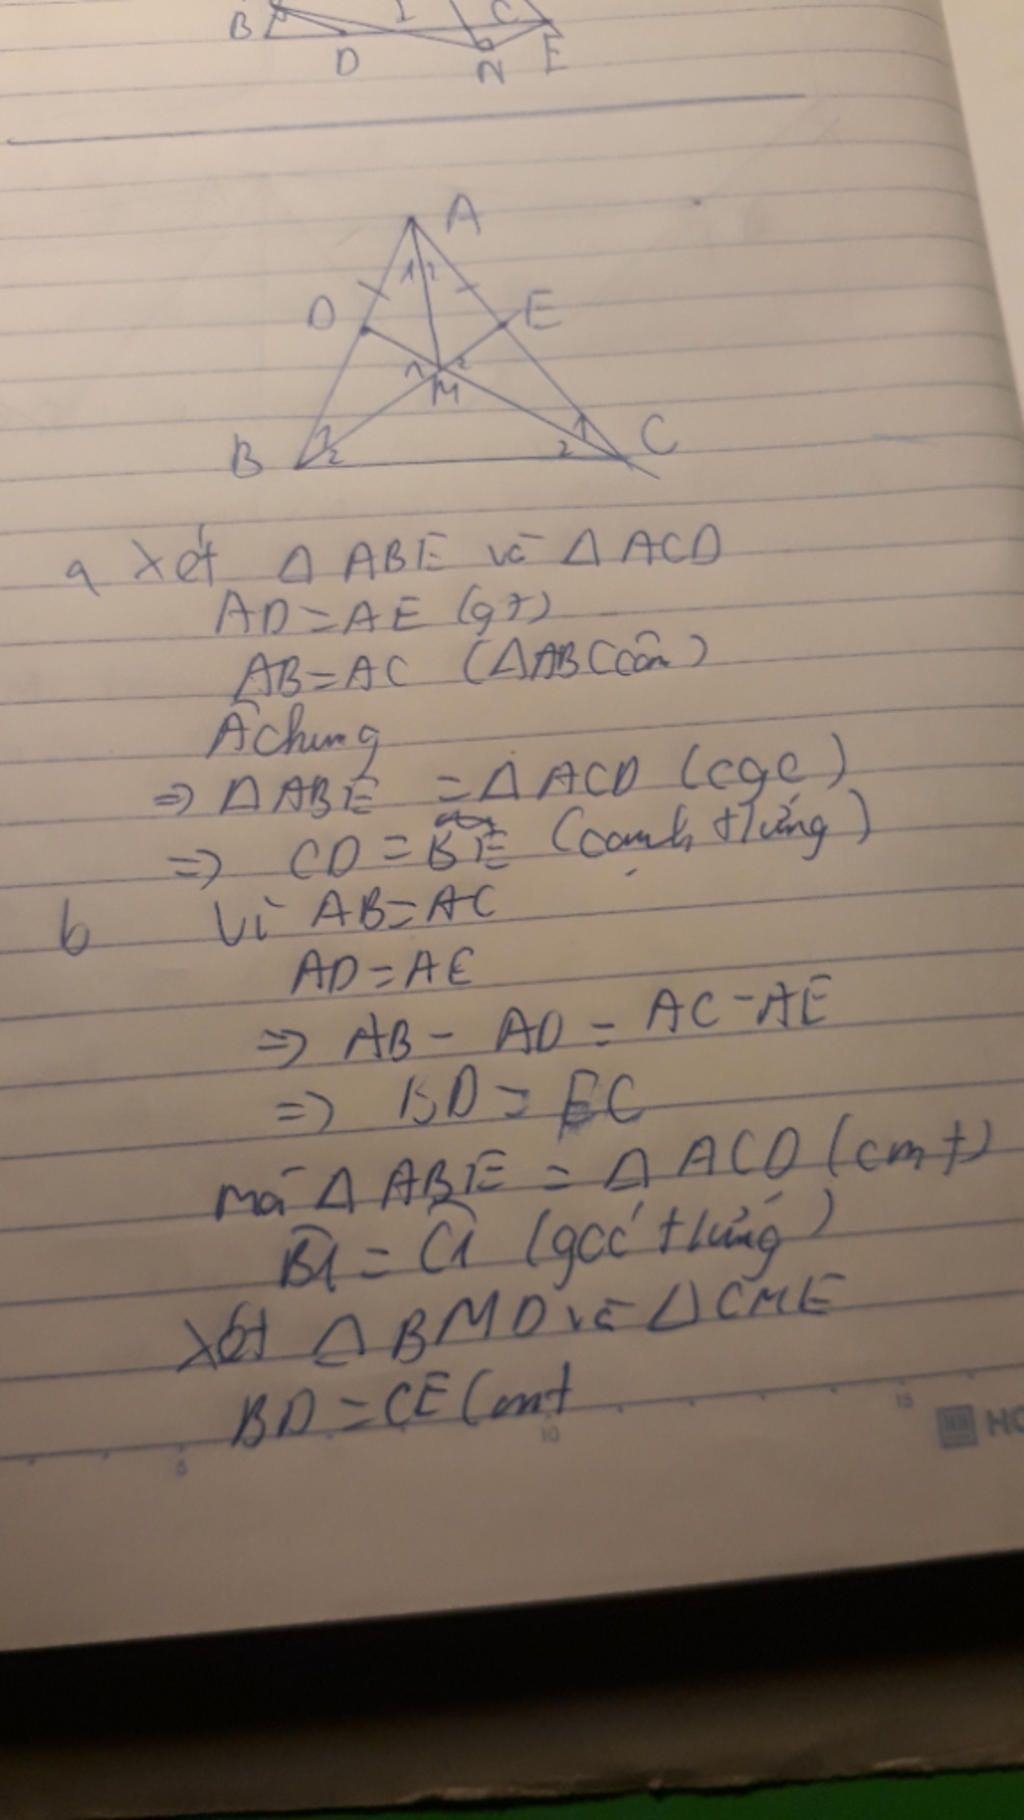 B I C
D N E
A
1 2
D E
1 2
M
B 1 2 2 1 C
a Xét Δ ABE và Δ ACD
AD = AE (gt)
AB = AC (ΔABC cân)
Â chung
=> Δ ABE = Δ ACD (cgc)
=> CD = BE (cạnh tứng)
b Vì AB = AC
AD = AE
=> AB - AD = AC - AE
=> BD = EC
mà Δ ABE = Δ ACD (cmt)
B̂1 = Ĉ1 (góc tứng)
Xét Δ BMD và Δ CME
BD = CE (cmt
5 10 15
HO